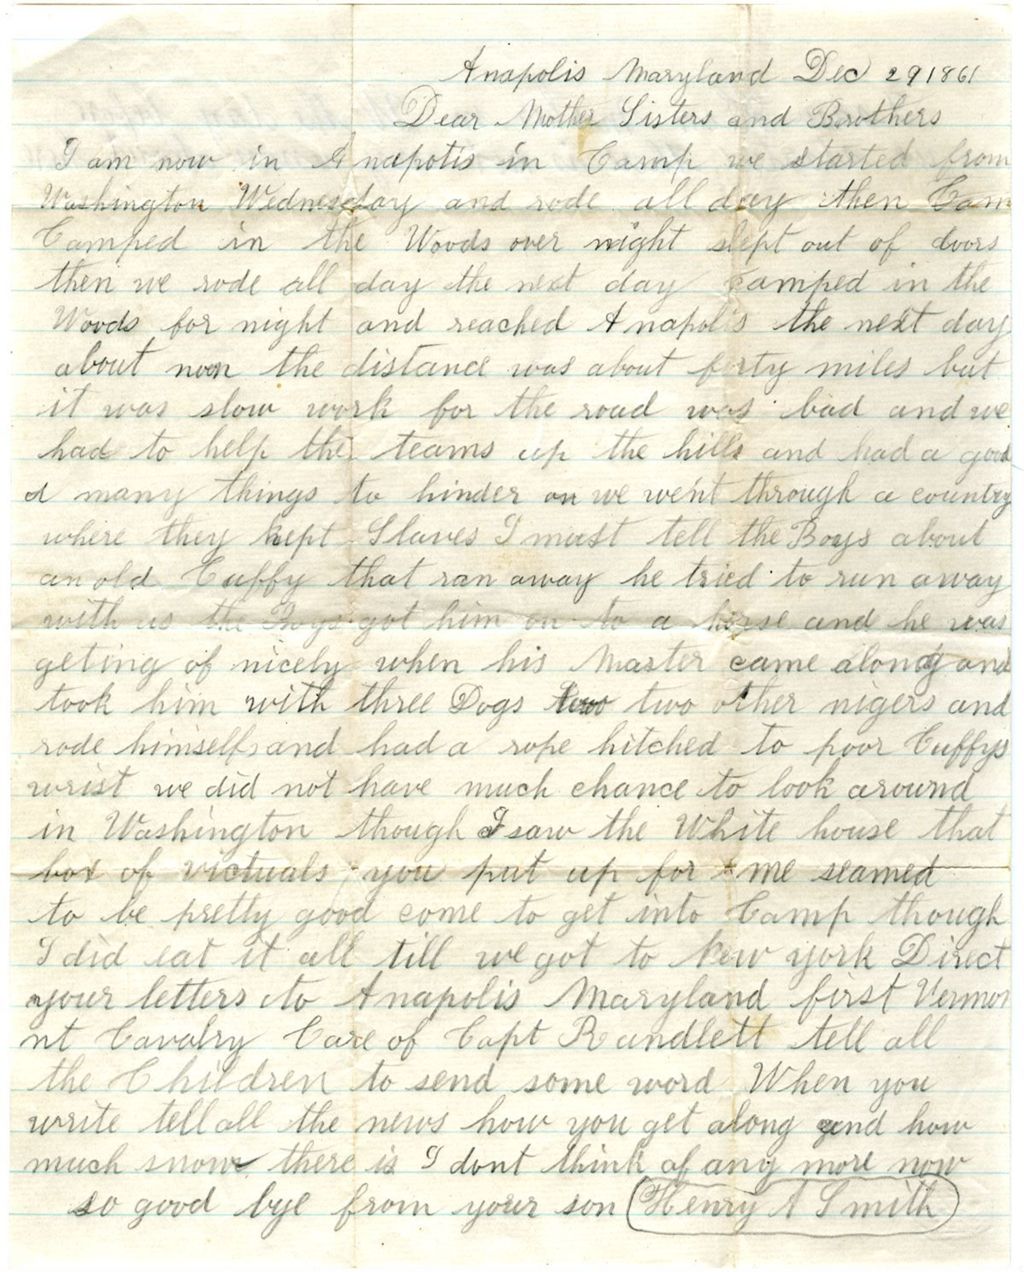 Anapolis Maryland Dec 29 1861
Dear Mother Sisters and Brothers
I am now in Anapolis in Camp we started from
Washington Wednesday and rode all day then Cam
Camped in the Woods over night slept out of doors
then we rode all day the next day camped in the
Woods for night and reached Anapolis the next day
about noon the distance was about forty miles but
it was slow work for the road was bad and we
had to help the teams up the hills and had a good
d many things to hinder on we went through a country
where they kept Slaves I must tell the Boys about
an old Cuffy that ran away he tried to run away
with us the Boys got him on to a horse and he was
geting of nicely when his Master came along and
took him with three Dogs two two other nigers and
rode himself and had a rope hitched to poor Cuffys
wrist we did not have much chance to look around
in Washington though I saw the White house that
box of victuals you put up for me seamed
to be pretty good come to get into Camp though
I did eat it all till we got to New york Direct
your letters to Anapolis Maryland first Vermo
nt Cavalry Care of Capt Rundlett tell all
the Children to send some word When you
write tell all the news how you get along and how
much snow there is I dont think of any more now
so good bye from your son Henry A Smith